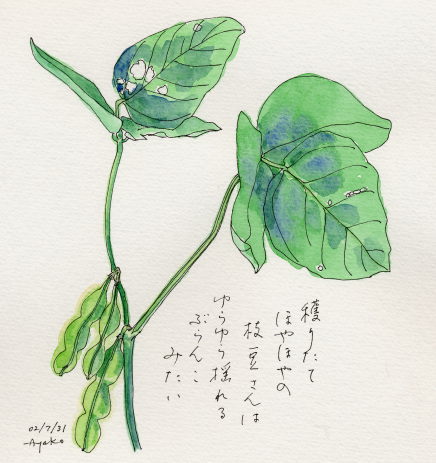 穫りたて
ほやほやの
枝豆さんは
ゆらゆら揺れる
ぶらんこ
みたい
02/7/31
-Ayako